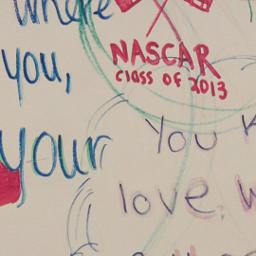 where
you,
your
NASCAR
CLASS OF 2013
You
love.